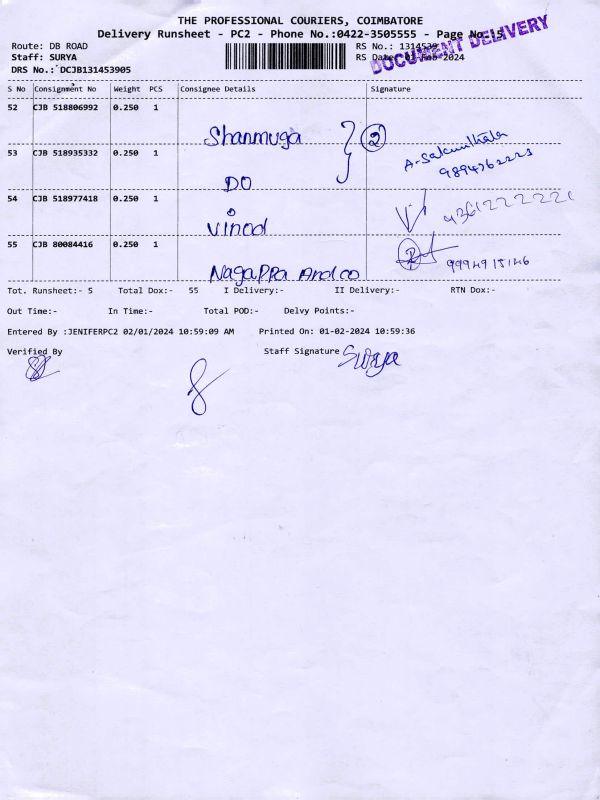 THE PROFESSIONAL COURIERS, COIMBATORE
Delivery Runsheet - PC2 - Phone No.:0422-3505555 - Page No.
Route: DB ROAD
RS No.:
Staff: SURYA
RS Date: 01-Feb-2024
DRS No.: DCJB131453905
DOCUMENT DELIVERY
S No Consignment No Weight PCS Consignee Details Signature
52 CJB 518806992 0.250 1 Shanmuga } 2 A-Sakunthala
53 CJB 518935332 0.250 1 DO
54 CJB 518977418 0.250 1 Vinod
55 CJB 80084416 0.250 1 Nagappa And co
Tot. Runsheet:- 5 Total Dox:- 55 I Delivery:- II Delivery:- RTN Dox:-
Out Time:- In Time:- Total POD:- Delvy Points:-
Entered By :JENIFERPC2 02/01/2024 10:59:09 AM Printed On: 01-02-2024 10:59:36
Verified By Staff Signature Surya